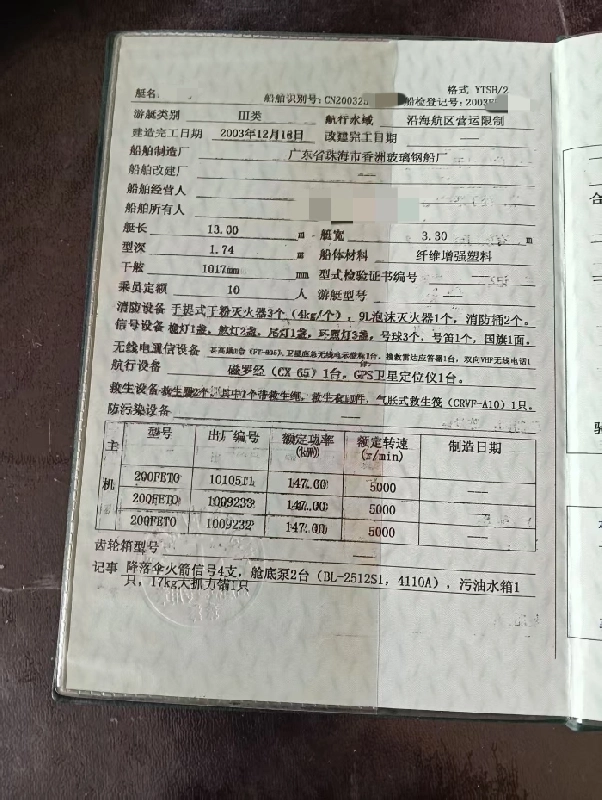 格式 YTSH/2
艇名 船舶识别号：CN200325 船检登记号：2003
游艇类别 III类 航行水域 沿海航区营运限制
建造完工日期 2003年12月18日 改建完工日期 —
船舶制造厂 广东省珠海市香洲玻璃钢船厂
船舶改建厂 —
船舶经营人
船舶所有人
艇长 13.00 m 艇宽 3.30 m
型深 1.74 m 船体材料 纤维增强塑料
干舷 1017mm mm 型式检验证书编号 —
乘员定额 10 人 游艇型号 —
消防设备 手提式干粉灭火器3个（4kg/个），9L泡沫灭火器1个，消防桶2个。
信号设备 桅灯1盏，舷灯2盏，尾灯1盏，环照灯3盏，号球3个，号笛1个，国旗1面，
无线电通信设备 卫星应急无线电示位标1台，搜救雷达应答器1台，双向VHF无线电话1
航行设备 磁罗经（CX 65）1台，GPS卫星定位仪1台。
救生设备 救生圈2个，其中1个带救生绳，救生衣 件，气胀式救生筏（CRVF-A10）1只。
防污染设备 —
主机 型号 出厂编号 额定功率(kW) 额定转速(r/min) 制造日期
200FETO 147.00 5000 —
200FETO 1009233 147.00 5000 —
200FETO 1009232 147.00 5000 —
齿轮箱型号 —
记事 降落伞火箭信号4支，舱底泵2台（BL-2512S1，4110A），污油水箱1
只，17kg大抓力锚1只